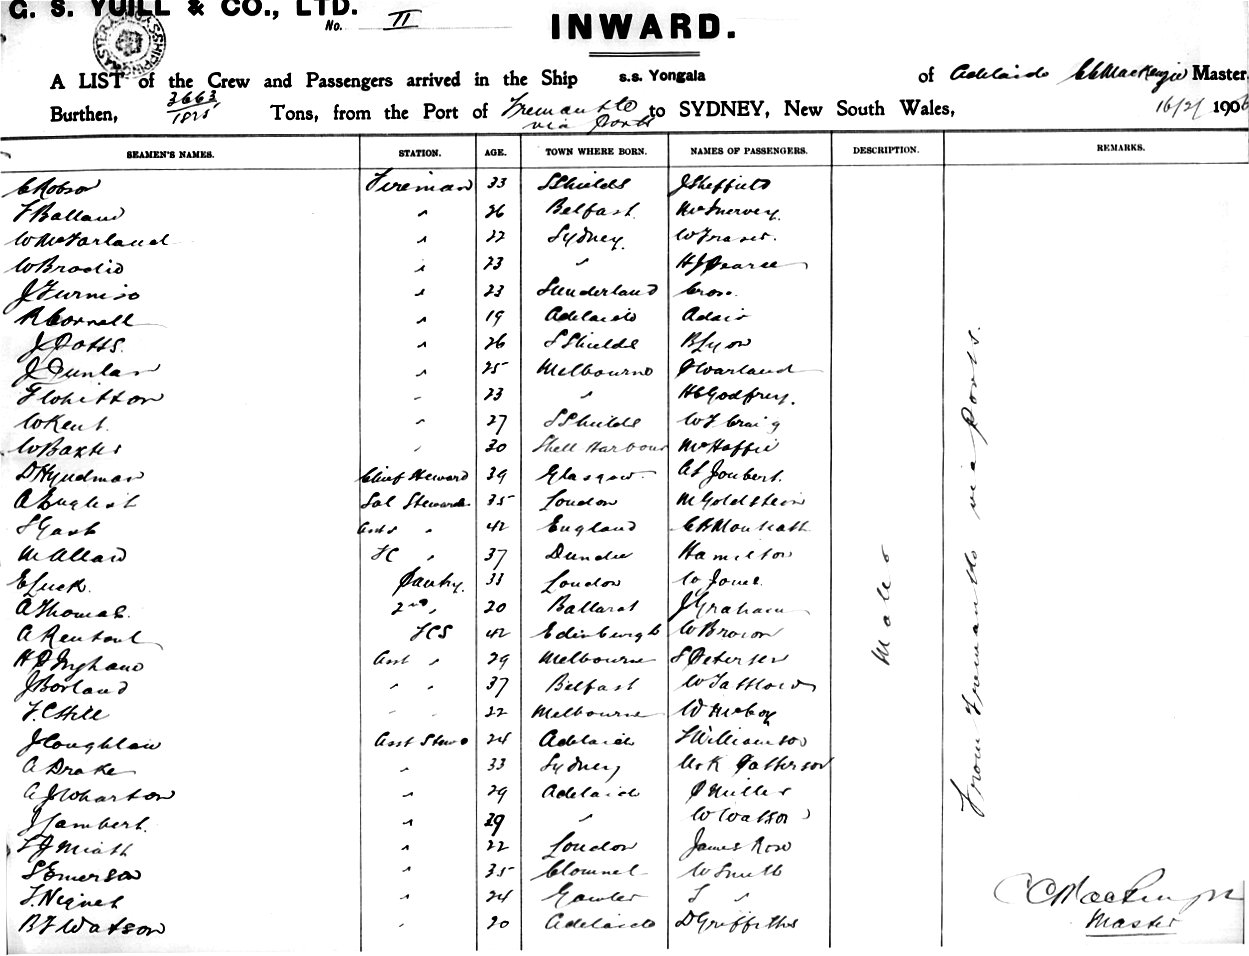 G. S. YUILL & CO., LTD.
No. II
INWARD.
A LIST of the Crew and Passengers arrived in the Ship s.s. Yongala of Adelaide CC Mackenzie Master,
Burthen, 3663 / 1825 Tons, from the Port of Fremantle via Ports to SYDNEY, New South Wales, 16/2/ 1906
SEAMEN'S NAMES. STATION. AGE. TOWN WHERE BORN. NAMES OF PASSENGERS. DESCRIPTION. REMARKS.
C Robson Fireman 33 S Shields J Sheffield
F Balland " 26 Belfast McInervey
W McFarland " 22 Sydney W Fraser.
W Brodie " 23 " H J Pearce
J Furniss " 23 Sunderland Cross.
R Cornell " 19 Adelaide Adair
J Potts. " 26 S Shields B Lyon
J Dunlan " 25 Melbourne Warland
F Whitton " 23 " H C Godfrey.
W Kent. " 27 S Shields W F Craig
W Baxter " 30 Shell Harbour McHaffie
D Hyndman Chief Steward 39 Glasgow A L Joubert.
A English Sal Steward 35 London M Goldstein
S Gash Asst " 42 England C B Monkath
M Allan FC " 37 Dundee Hamilton
E Luck. Pantry. 33 London W Jones
A Thomas. 2nd " 20 Ballarat J Graham
A Rentoul FCS 42 Edinburgh W Brown
H D Ingham Asst " 29 Melbourne S Petersen
J Borland " " 37 Belfast W Tattlow
F. C Hill " " 22 Melbourne W McCoy
J Coughlan Asst Stewd 24 Adelaide F Williamson
A Drake " 33 Sydney Patterson
A J Wharton " 29 Adelaide P Miller
J Lambert. " 29 " W Watson
F J Miath " 22 London James Ross
S Emerson " 35 Clonmel W Smith
F. Niquet " 24 Gawler F "
B F Watson " 20 Adelaide D Griffiths
Male
From Fremantle via Ports.
CC Mackenzie
Master